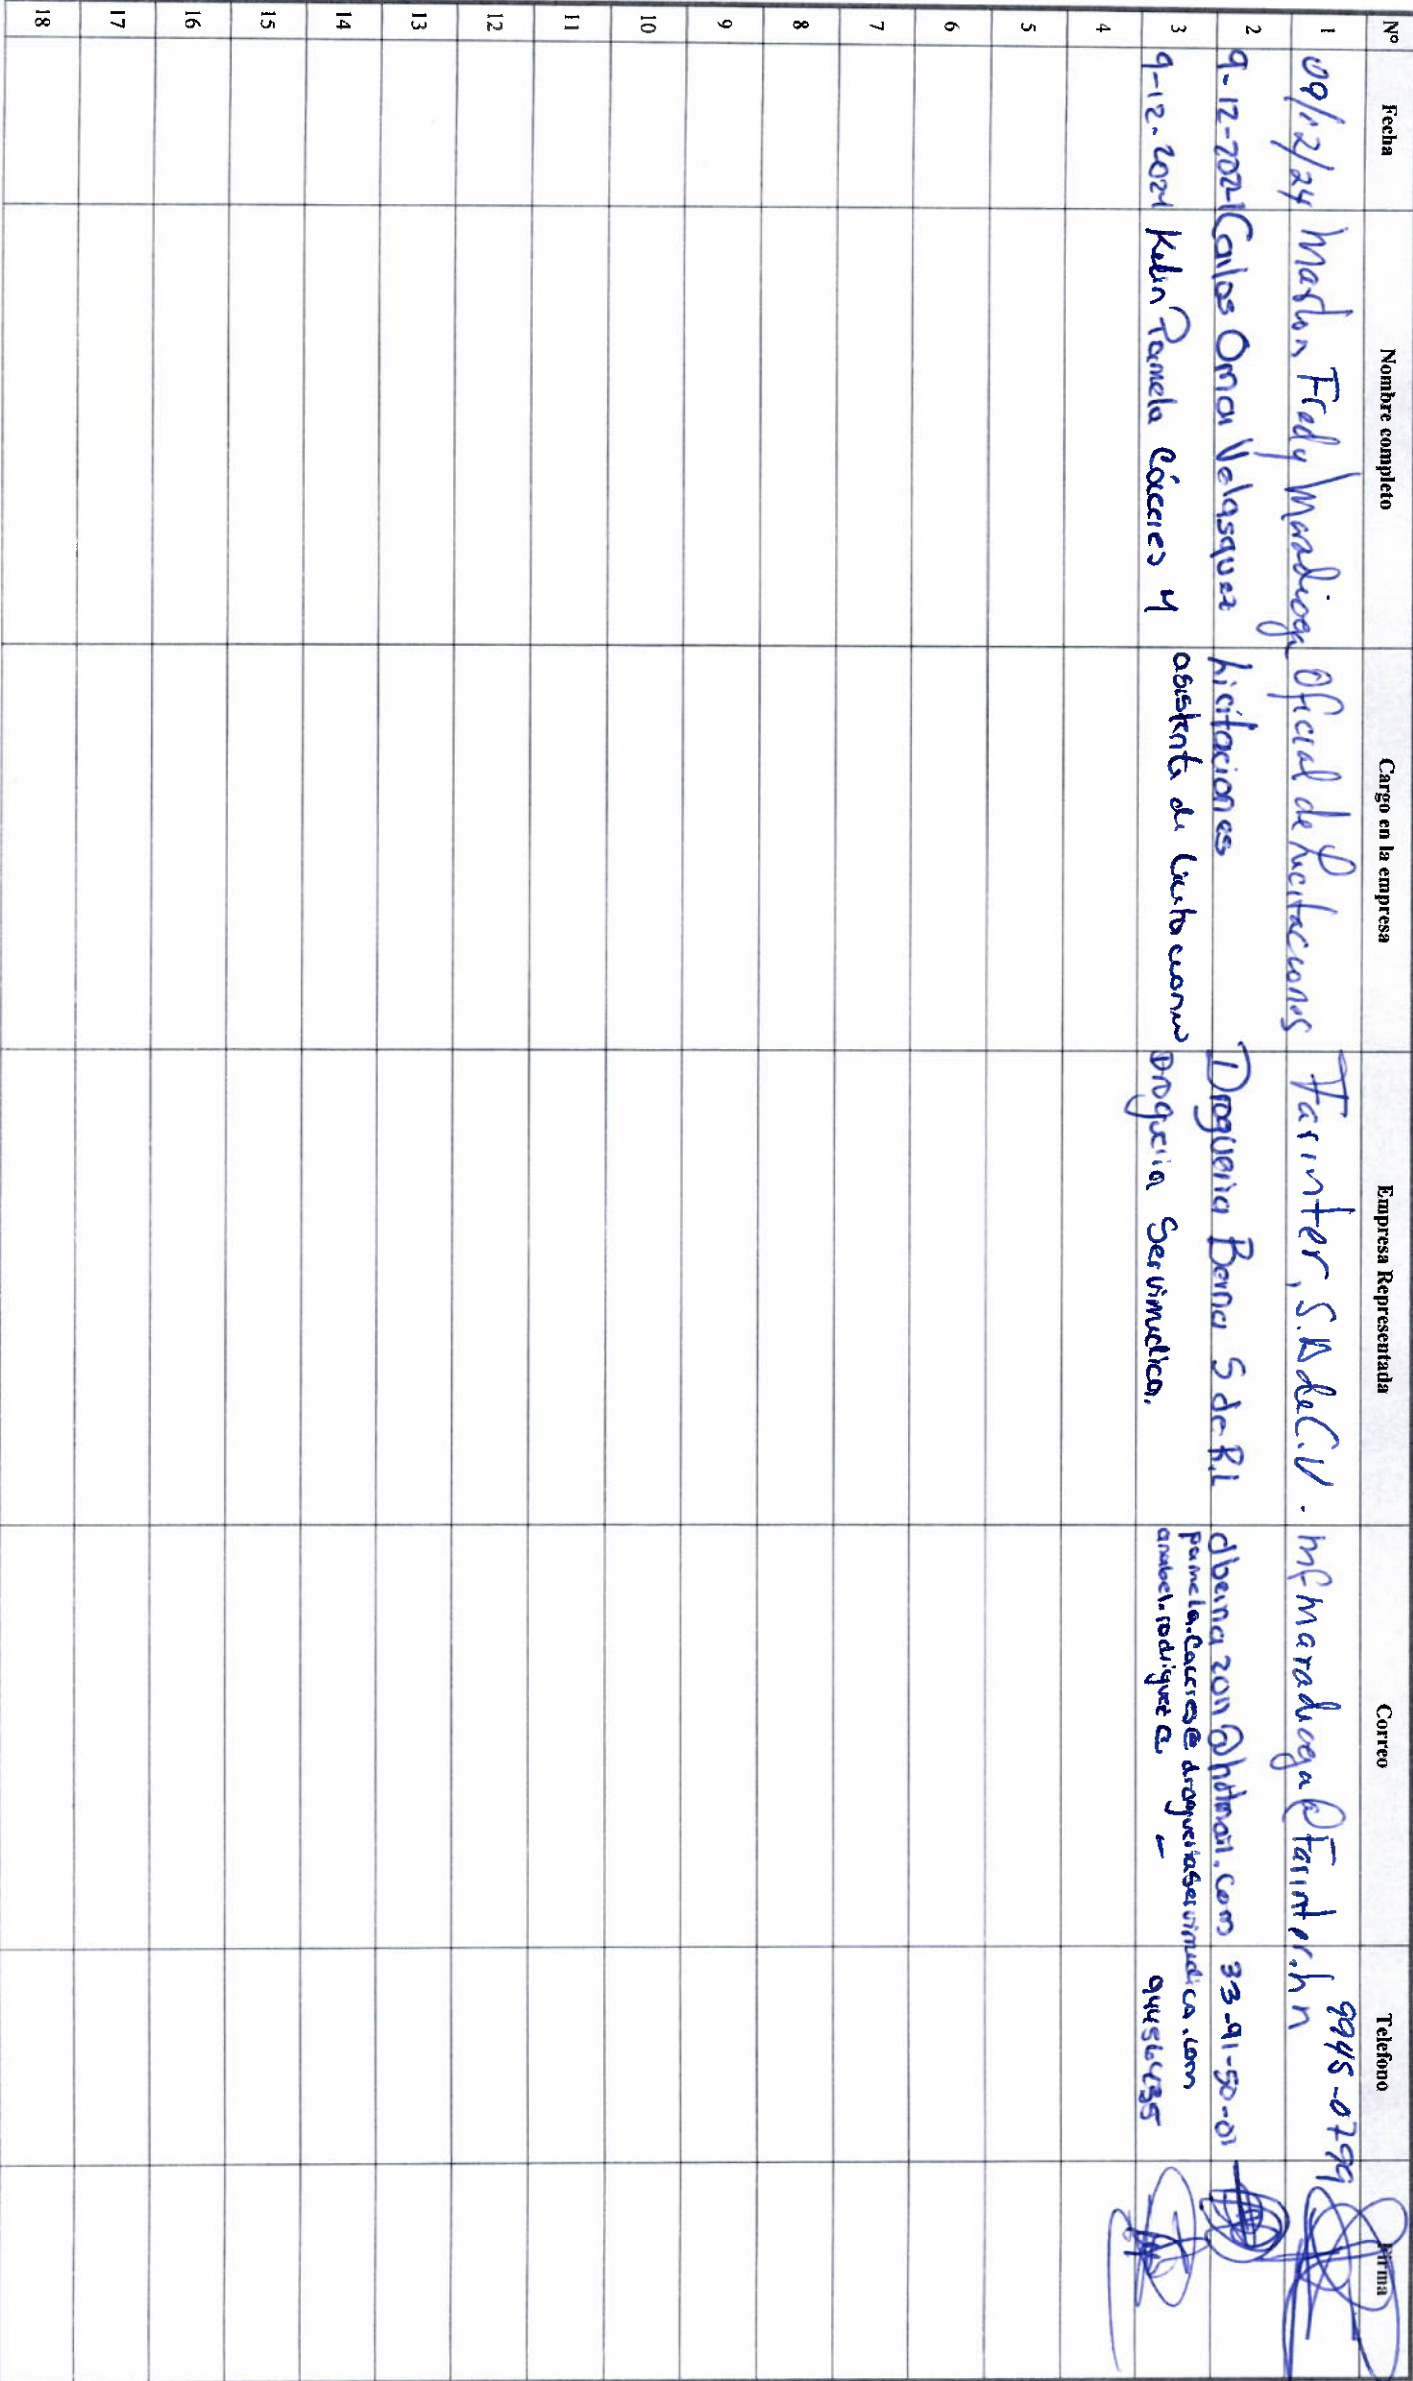 Nº Fecha Nombre completo Cargo en la empresa Empresa Representada Correo Telefono Firma
1 09/12/24 Marlon Fredy Maradiaga Oficial de Licitaciones Farinter, S.A de C.V. mfmaradiaga@Farinter.hn 9945-0799
2 9-12-2024 Carlos Omar Velasquez Licitaciones Drogueria Berna S de R.L dberna2011@hotmail.com 33-91-50-01
3 9-12-2024 Kelin Pamela Cáceres M asistente de Licitaciones Drogueria Servimedica. pamela.caceres@drogueriaservimedica.com
anabel.rodriguez@ –
4
5
6
7
8
9
10
11
12
13
14
15
16
17
18